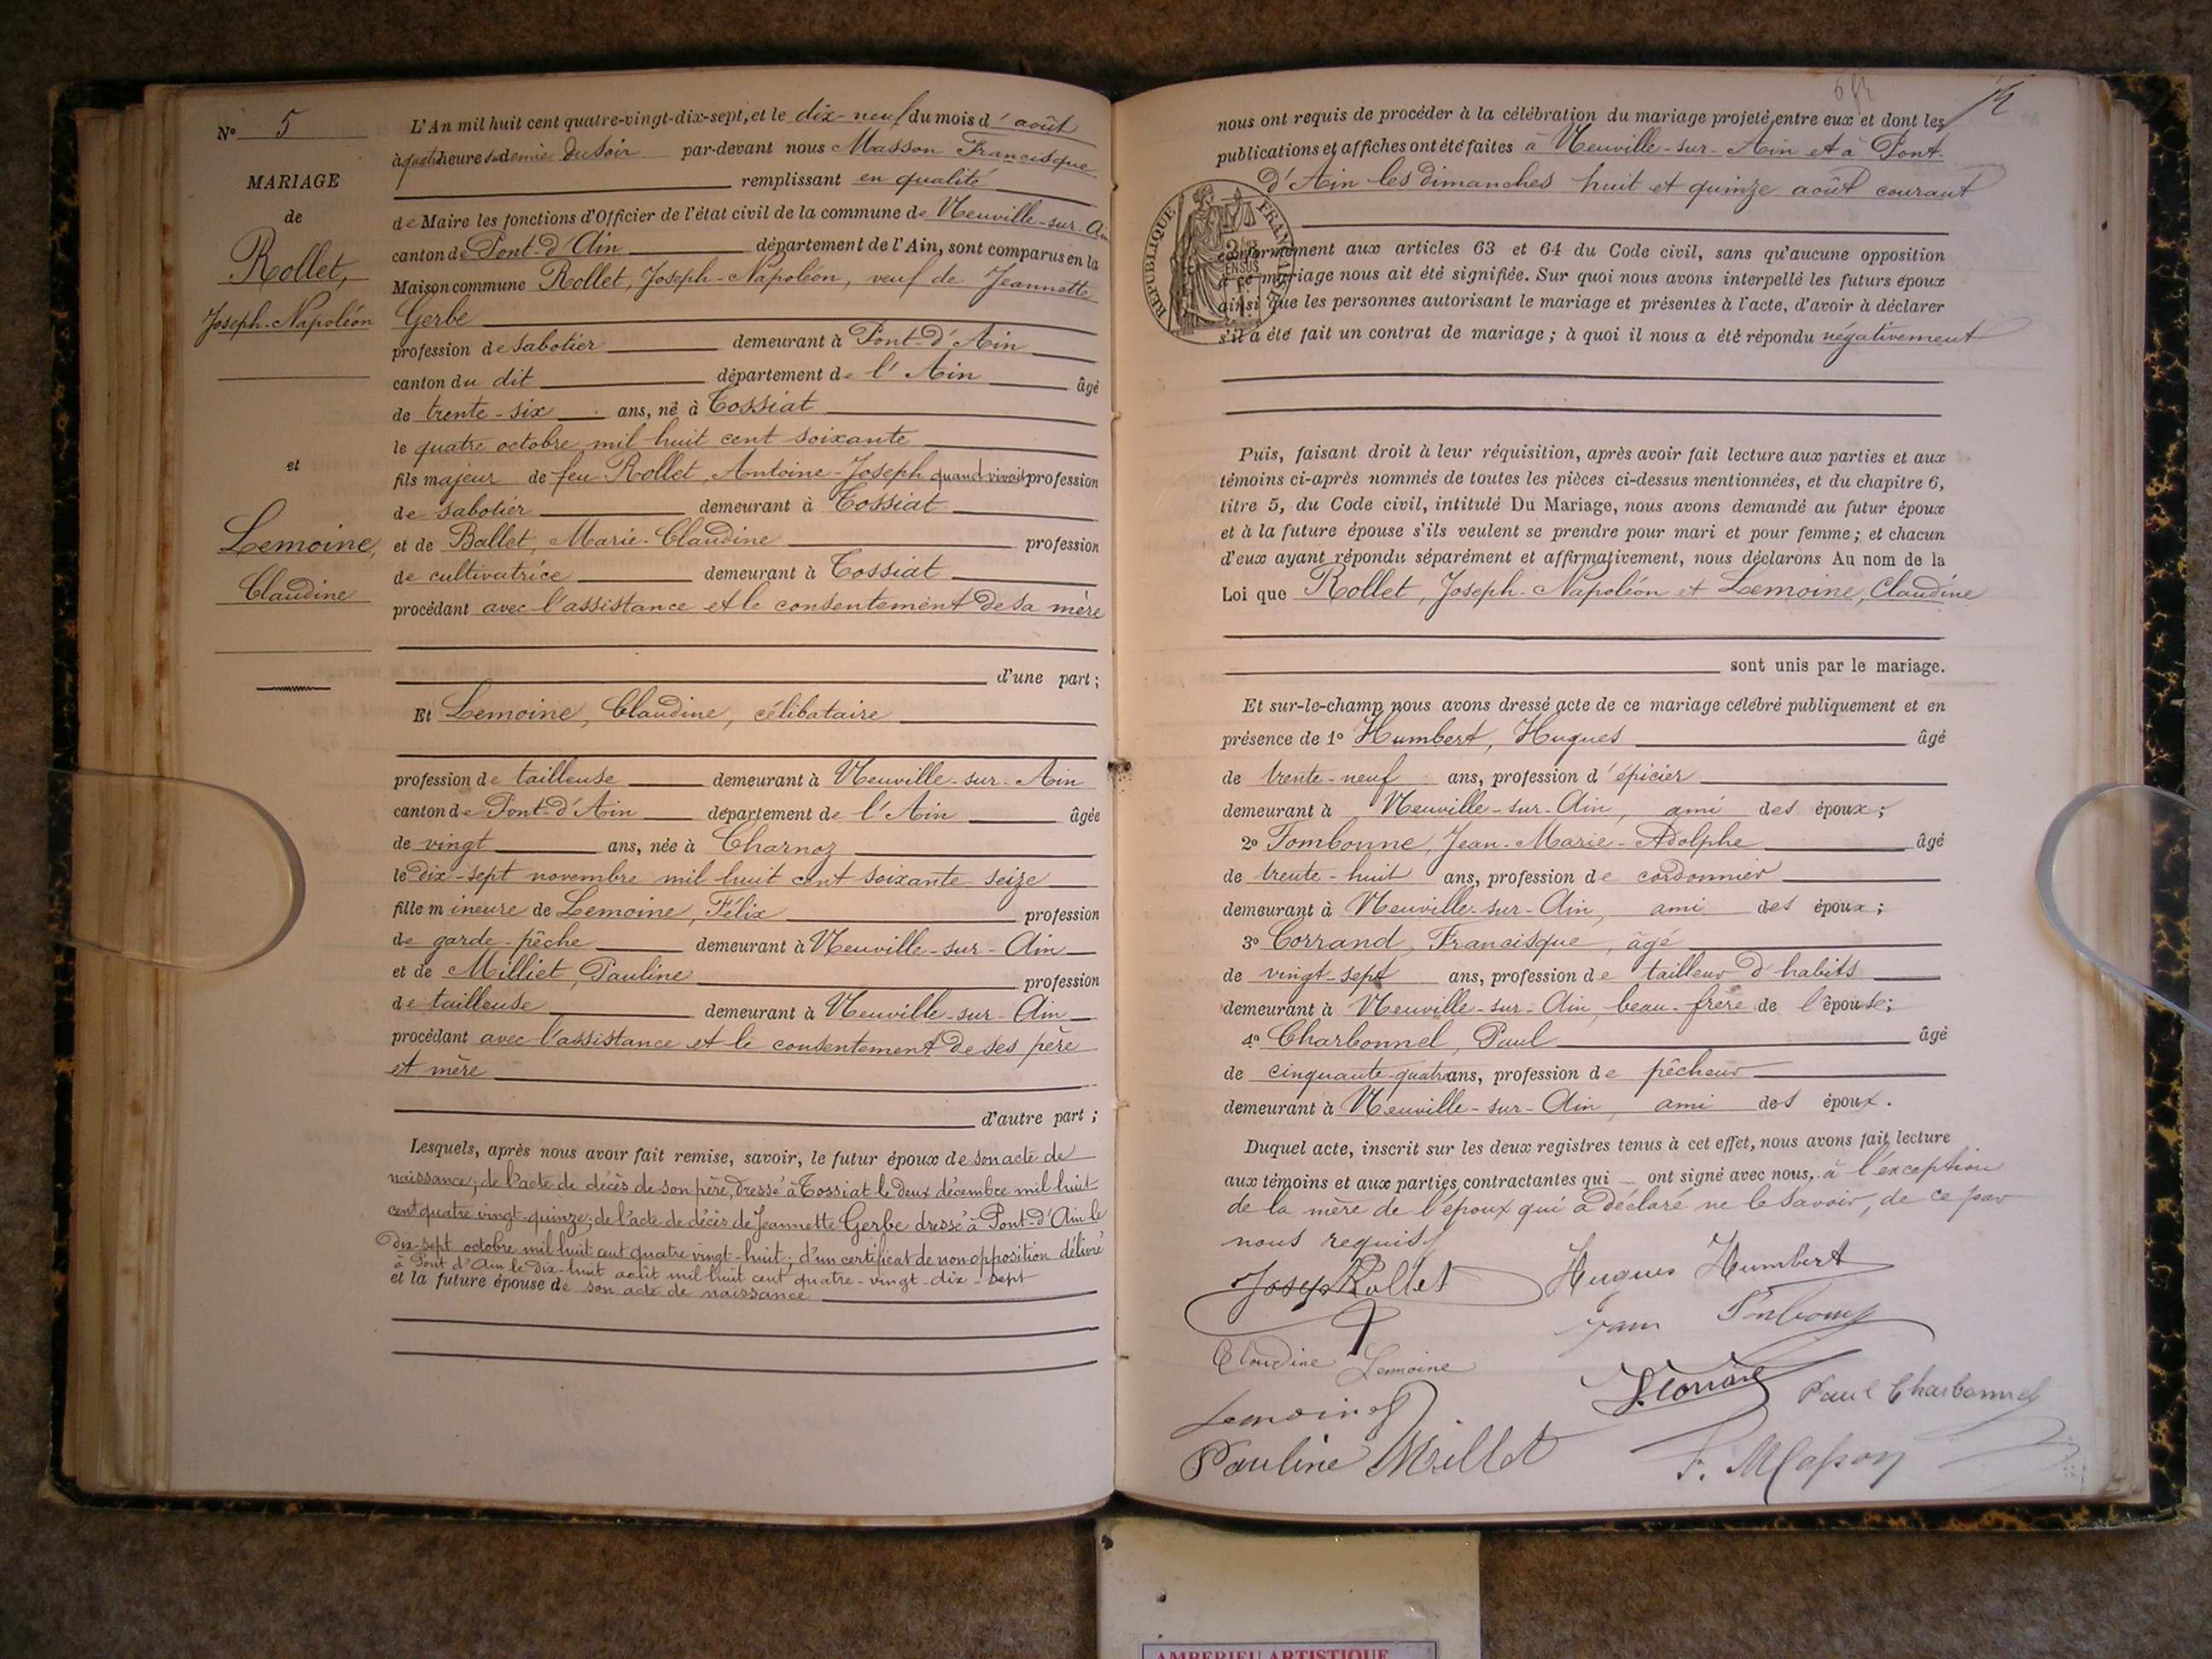 N° 5
MARIAGE
de
Rollet,
Joseph-Napoléon
et
Lemoine,
Claudine
L'An mil huit cent quatre-vingt-dix-sept, et le dix-neuf du mois d'août
à quatre heure et demie du soir par-devant nous Masson Francisque
remplissant en qualité
de Maire les fonctions d'Officier de l'état civil de la commune de Neuville-sur-Ain
canton de Pont-d'Ain département de l'Ain, sont comparus en la
Maison commune Rollet, Joseph-Napoléon, veuf de Jeannette
Gerbe
profession de sabotier demeurant à Pont-d'Ain
canton du dit département de l'Ain âgé
de trente-six ans, né à Tossiat
le quatre octobre mil huit cent soixante
fils majeur de feu Rollet, Antoine-Joseph quand vivait profession
de sabotier demeurant à Tossiat
et de Ballet, Marie-Claudine profession
de cultivatrice demeurant à Tossiat
procédant avec l'assistance et le consentement de sa mère
d'une part;
Et Lemoine, Claudine, célibataire
profession de tailleuse demeurant à Neuville-sur-Ain
canton de Pont-d'Ain département de l'Ain âgée
de vingt ans, née à Charnoz
le dix-sept novembre mil huit cent soixante-seize
fille mineure de Lemoine, Félix profession
de garde-pêche demeurant à Neuville-sur-Ain
et de Milliet, Pauline profession
de tailleuse demeurant à Neuville-sur-Ain
procédant avec l'assistance et le consentement de ses père
et mère
d'autre part;
Lesquels, après nous avoir fait remise, savoir, le futur époux de son acte de
naissance; de l'acte de décès de son père, dressé à Tossiat le deux décembre mil huit
cent quatre vingt-quinze; de l'acte de décès de Jeannette Gerbe dressé à Pont-d'Ain le
dix-sept octobre mil huit cent quatre vingt-huit; d'un certificat de non opposition délivré
à Pont d'Ain le dix-huit août mil huit cent quatre-vingt-dix-sept
et la future épouse de son acte de naissance
6 fr
nous ont requis de procéder à la célébration du mariage projeté entre eux et dont les
publications et affiches ont été faites à Neuville-sur-Ain et à Pont-
d'Ain les dimanches huit et quinze août courant
RÉPUBLIQUE FRANÇAISE
conformément aux articles 63 et 64 du Code civil, sans qu'aucune opposition
à ce mariage nous ait été signifiée. Sur quoi nous avons interpellé les futurs époux
ainsi que les personnes autorisant le mariage et présentes à l'acte, d'avoir à déclarer
s'il a été fait un contrat de mariage; à quoi il nous a été répondu négativement
Puis, faisant droit à leur réquisition, après avoir fait lecture aux parties et aux
témoins ci-après nommés de toutes les pièces ci-dessus mentionnées, et du chapitre 6,
titre 5, du Code civil, intitulé Du Mariage, nous avons demandé au futur époux
et à la future épouse s'ils veulent se prendre pour mari et pour femme; et chacun
d'eux ayant répondu séparément et affirmativement, nous déclarons Au nom de la
Loi que Rollet, Joseph-Napoléon et Lemoine, Claudine
sont unis par le mariage.
Et sur-le-champ nous avons dressé acte de ce mariage célébré publiquement et en
présence de 1° Humbert, Hugues âgé
de trente-neuf ans, profession d'épicier
demeurant à Neuville-sur-Ain, ami des époux;
2° Tombonne, Jean-Marie-Adolphe âgé
de trente-huit ans, profession de cordonnier
demeurant à Neuville-sur-Ain, ami des époux;
3° Corrand, Francisque, âgé
de vingt-sept ans, profession de tailleur d'habits
demeurant à Neuville-sur-Ain, beau-frère de l'épouse;
4° Charbonnel, Paul âgé
de cinquante-quatre ans, profession de pêcheur
demeurant à Neuville-sur-Ain, ami des époux.
Duquel acte, inscrit sur les deux registres tenus à cet effet, nous avons fait lecture
aux témoins et aux parties contractantes qui ont signé avec nous, à l'exception
de la mère de l'époux qui a déclaré ne le savoir, de ce par
nous requis
Josep Rollet
Hugues Humbert
Claudine Lemoine
Lemoine
Paul Charbonnel
Pauline Milliet
F. Masson
AMBERIEU ARTISTIQUE